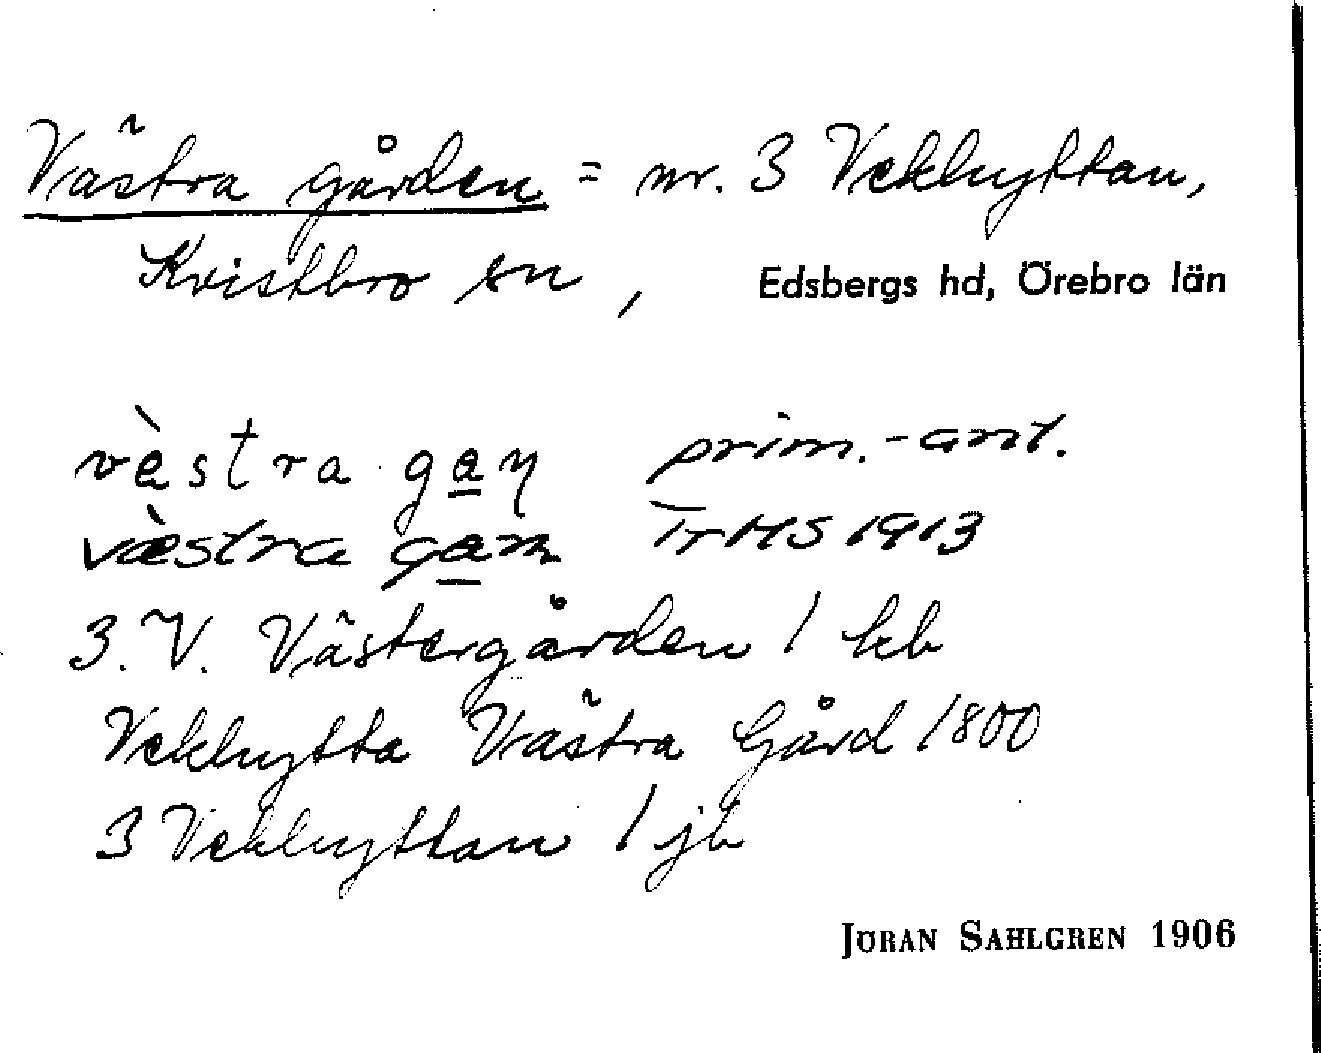 Västra gården = nr. 3 Vekhyttan,
Kvistbro sn, Edsbergs hd, Örebro län
vèstra gaṉ prim.-ant.
væ̀stra gam TrHS 1913
3. V. Västergården / kb
Vekhytta Västra Gård 1800
3 Vekhyttan / jb
JÖRAN SAHLGREN 1906